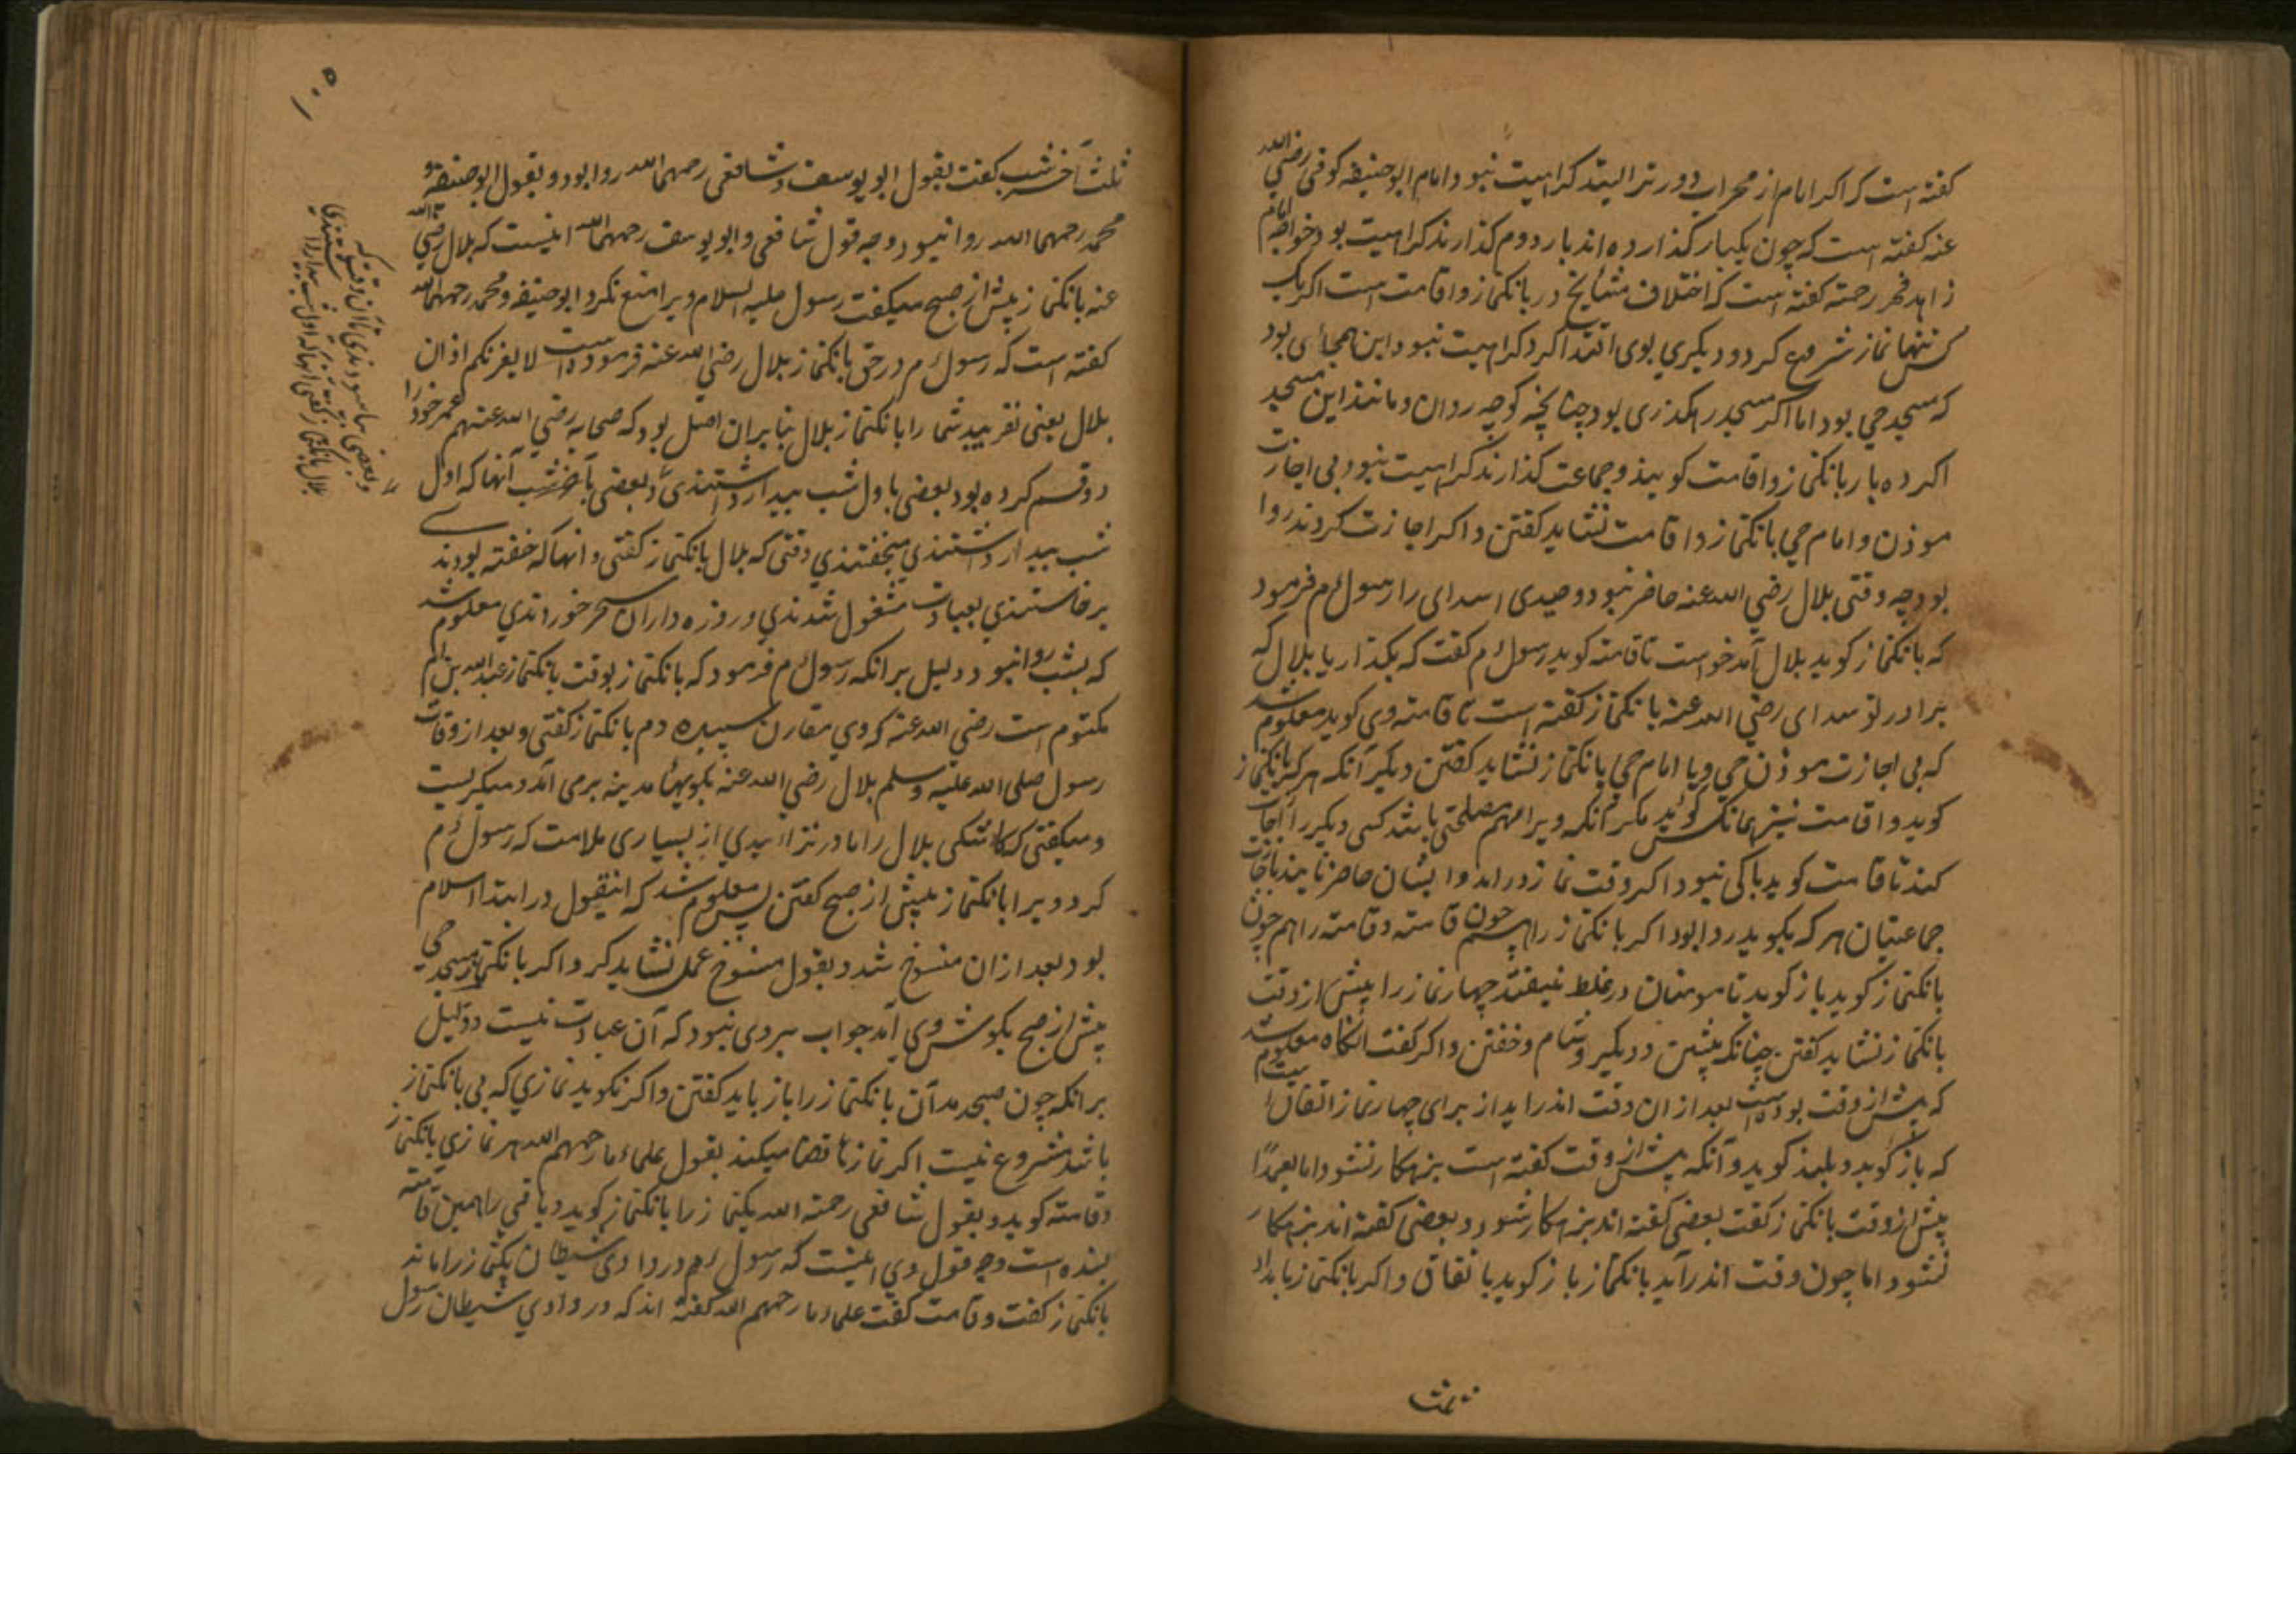 کفته است که اکر امام از محراب دورتر ایستد کراهیت نبود و امام ابو حنیفه کوفی رضی الله
عنه کفته است که چون یکبار کذارده اند بار دوم کذارند کراهیت بود و خواجه امام
زاهد فخر رحمة کفته است که اختلاف مشایخ در بانکنماز و اقامت است اکر یک
کس تنها نماز شروع کرد و دیکری بوی اقتدا کرد کراهیت نبود و این همه جائی بود
که مسجد حی بود اما اکر مسجد رهکذری بود چنانچه کوچه روان و مانند این مسجد
اکر ده بار بانکنماز و اقامت کویند و جماعت کذارند کراهیت نبود و بی اجازت
موذن و امام حی بانکنماز و اقامت نشاید کفتن و اکر اجازت کردند روا
بود چه وقتی بلال رضی الله عنه حاضر نبود و صیدی را رسول م فرمود
که بانکنماز کوید بلال آمد خواست تا قامته کوید رسول م کفت که بکذار یا بلال که
برادر تو رضی الله عنه بانکنماز کفته است تا قامته وی کوید معلوم شد
که بی اجازت موذن حی و یا امام حی بانکنماز نشاید کفتن دیکر آنکه هر که بانکنماز
کوید و اقامت نیز همانکس کوید مکر آنکه ویرا مهم مصلحتی باشد کسی دیکر را اجازت
کند تا قامت کوید باکی نبود و اکر وقت نماز درآمد و ایشان حاضر نایند باجازت
جماعتیان هر که بکوید روا بود و اکر بانکنماز را همچون قامته و قامته را همچون
بانکنماز کوید باز کوید تا مومنان در غلط نیفتند چهار نماز را پیش از وقت
بانکنماز نشاید کفتن چنانکه پیشین و دیکر و شام و خفتن و اکر کفت انکاه معلوم شد
که پیش از وقت بوده است بعد از ان وقت اندر اید از برای چهار نماز اتفاق است
که باز کوید و بلند کوید و آنکه پیش از وقت کفته است بزهکار نشود اما بعمدا
پیش از وقت بانکنماز کفت بعضی کفته اند بزهکار شود و بعضی کفته اند بزهکار
نشود اما چون وقت اندر آید بانکنماز باز کوید باتفاق و اکر بانکنماز بامداد
ثلث آخر شب کفت بقول ابو یوسف و شافعی رحمهما الله روا بود و بقول ابو حنیفه و
محمد رحمهما الله روا نبود و وجه قول شافعی و ابو یوسف رحمهما الله اینست که بلال رضی الله
عنه بانکنماز پیش از صبح میکفت رسول علیه السلام ویرا منع نکرد و ابو حنیفه و محمد رحمهما الله
کفته است که رسول م در حق بانکنماز بلال رضی الله عنه فرموده است لا یغرنکم اذان
بلال یعنی نفریبد شما را بانکنماز بلال بنا بران اصل بود که صحابه رضی الله عنهم عمر خود را
دو قسم کرده بود بعضی باول شب بیدار داشتندی و بعضی بآخر شب آنها که اول
شب بیدار داشتندی بخفتندی وقتی که بلال بانکنماز کفتی و انها که خفته بودند
برخاستندی بعبادت مشغول شدندی و روزه داران سحر خوردندی معلوم شد
که بشب روا نبود و دلیل بر انکه رسول م فرمود که بانکنماز بوقت بانکنماز عبدالله بن ام
مکتوم است رضی الله عنه که وی مقارن سپیده دم بانکنماز کفتی و بعد از وفات
رسول صلی الله علیه وسلم بلال رضی الله عنه بکویهاء مدینه برمی آمد و میکریست
و میکفتی که کاشکی بلال را مادر نزاییدی از بسیاری ملامت که رسول م
کرد ویرا بانکنماز پیش از صبح کفتن پس معلوم شد که اینقول در ابتدا اسلام
بود بعد ازان منسوخ شد و بقول منسوخ عمل نشاید کرد و اکر بانکنماز مسجد حی
پیش از صبح بکوش وی آمد جواب بروی نبود که آن عبادت نیست و دلیل
بر انکه چون صبح بدمد آن بانکنماز را باز باید کفتن و اکر نکوید نمازی که بی بانکنماز
باشد مشروع نیست اکر نماز ناقضا میکند بقول علماء ما رحمهم الله هر نمازی بانکنماز
و قامته کوید و بقول شافعی رحمة الله یکنماز را بانکنماز کوید و باقی را همین قامته
بسنده است وجه قول وی اینست که رسول م در وادی شیطان یکنماز را ماند
بانکنماز کفت و قامت کفت علماء ما رحمهم الله کفته اند که در وادی شیطان رسول
ثلث
و بعضی بیاسودندی تا آن وقت که